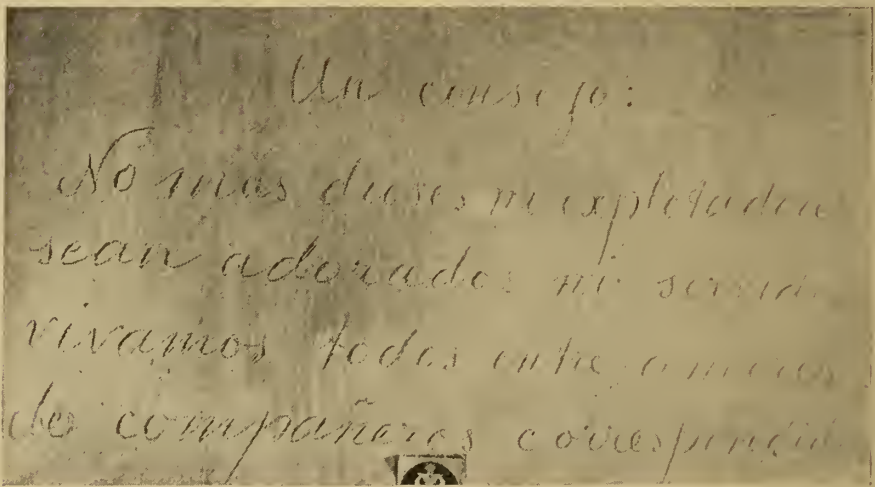 Un consejo:
No más dioses ni explotadores
sean adorados ni servid
vivamos todos entre amores
de compañeros correspondid